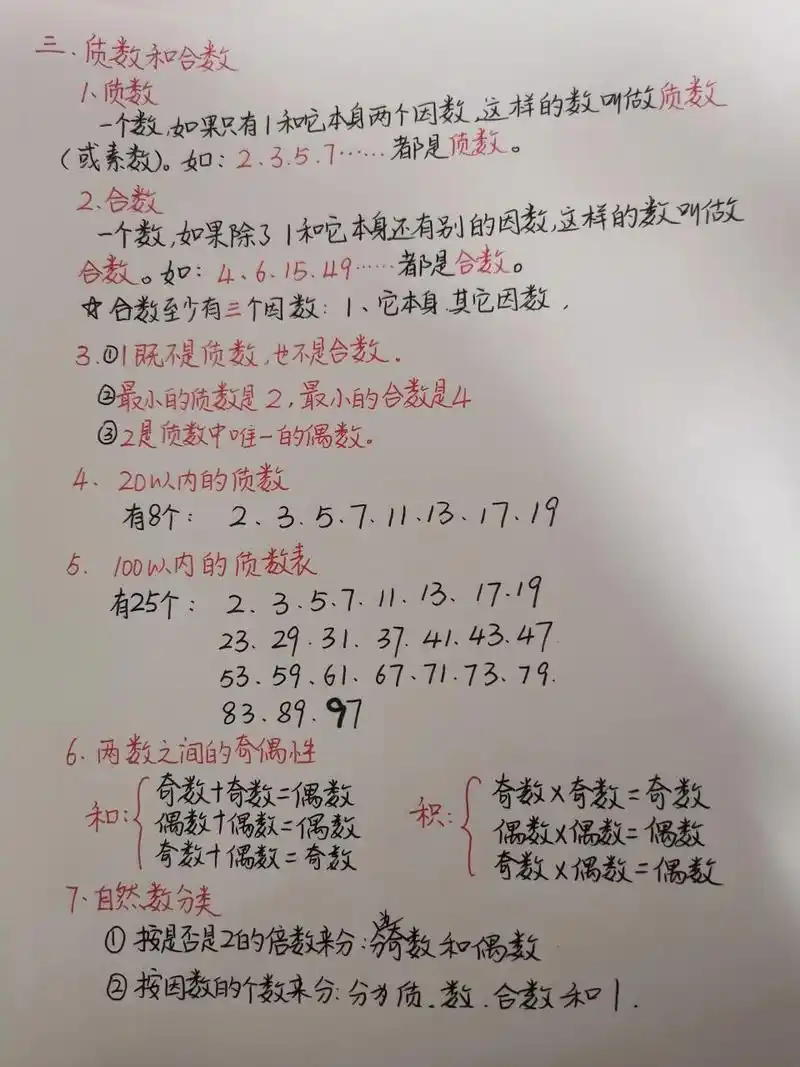 三、质数和合数
1、质数
一个数,如果只有1和它本身两个因数,这样的数叫做质数
(或素数)。如:2.3.5.7……都是质数。
2.合数
一个数,如果除了1和它本身还有别的因数,这样的数叫做
合数。如:4、6.15.49……都是合数。
☆合数至少有三个因数:1、它本身.其它因数,
3.①1既不是质数,也不是合数.
②最小的质数是2,最小的合数是4
③2是质数中唯一的偶数。
4、20以内的质数
有8个: 2、3、5、7、11、13、17、19
5. 100以内的质数表
有25个: 2、3、5、7、11、13、17、19
23、29、31、37、41、43、47
53、59、61、67、71、73、79.
83、89、97
6.两数之间的奇偶性
和:{奇数+奇数=偶数 积:{奇数×奇数=奇数
偶数+偶数=偶数 偶数×偶数=偶数
奇数+偶数=奇数 奇数×偶数=偶数
7.自然数分类
①按是否是2的倍数来分:分为奇数和偶数
②按因数的个数来分:分为质.数.合数和1.